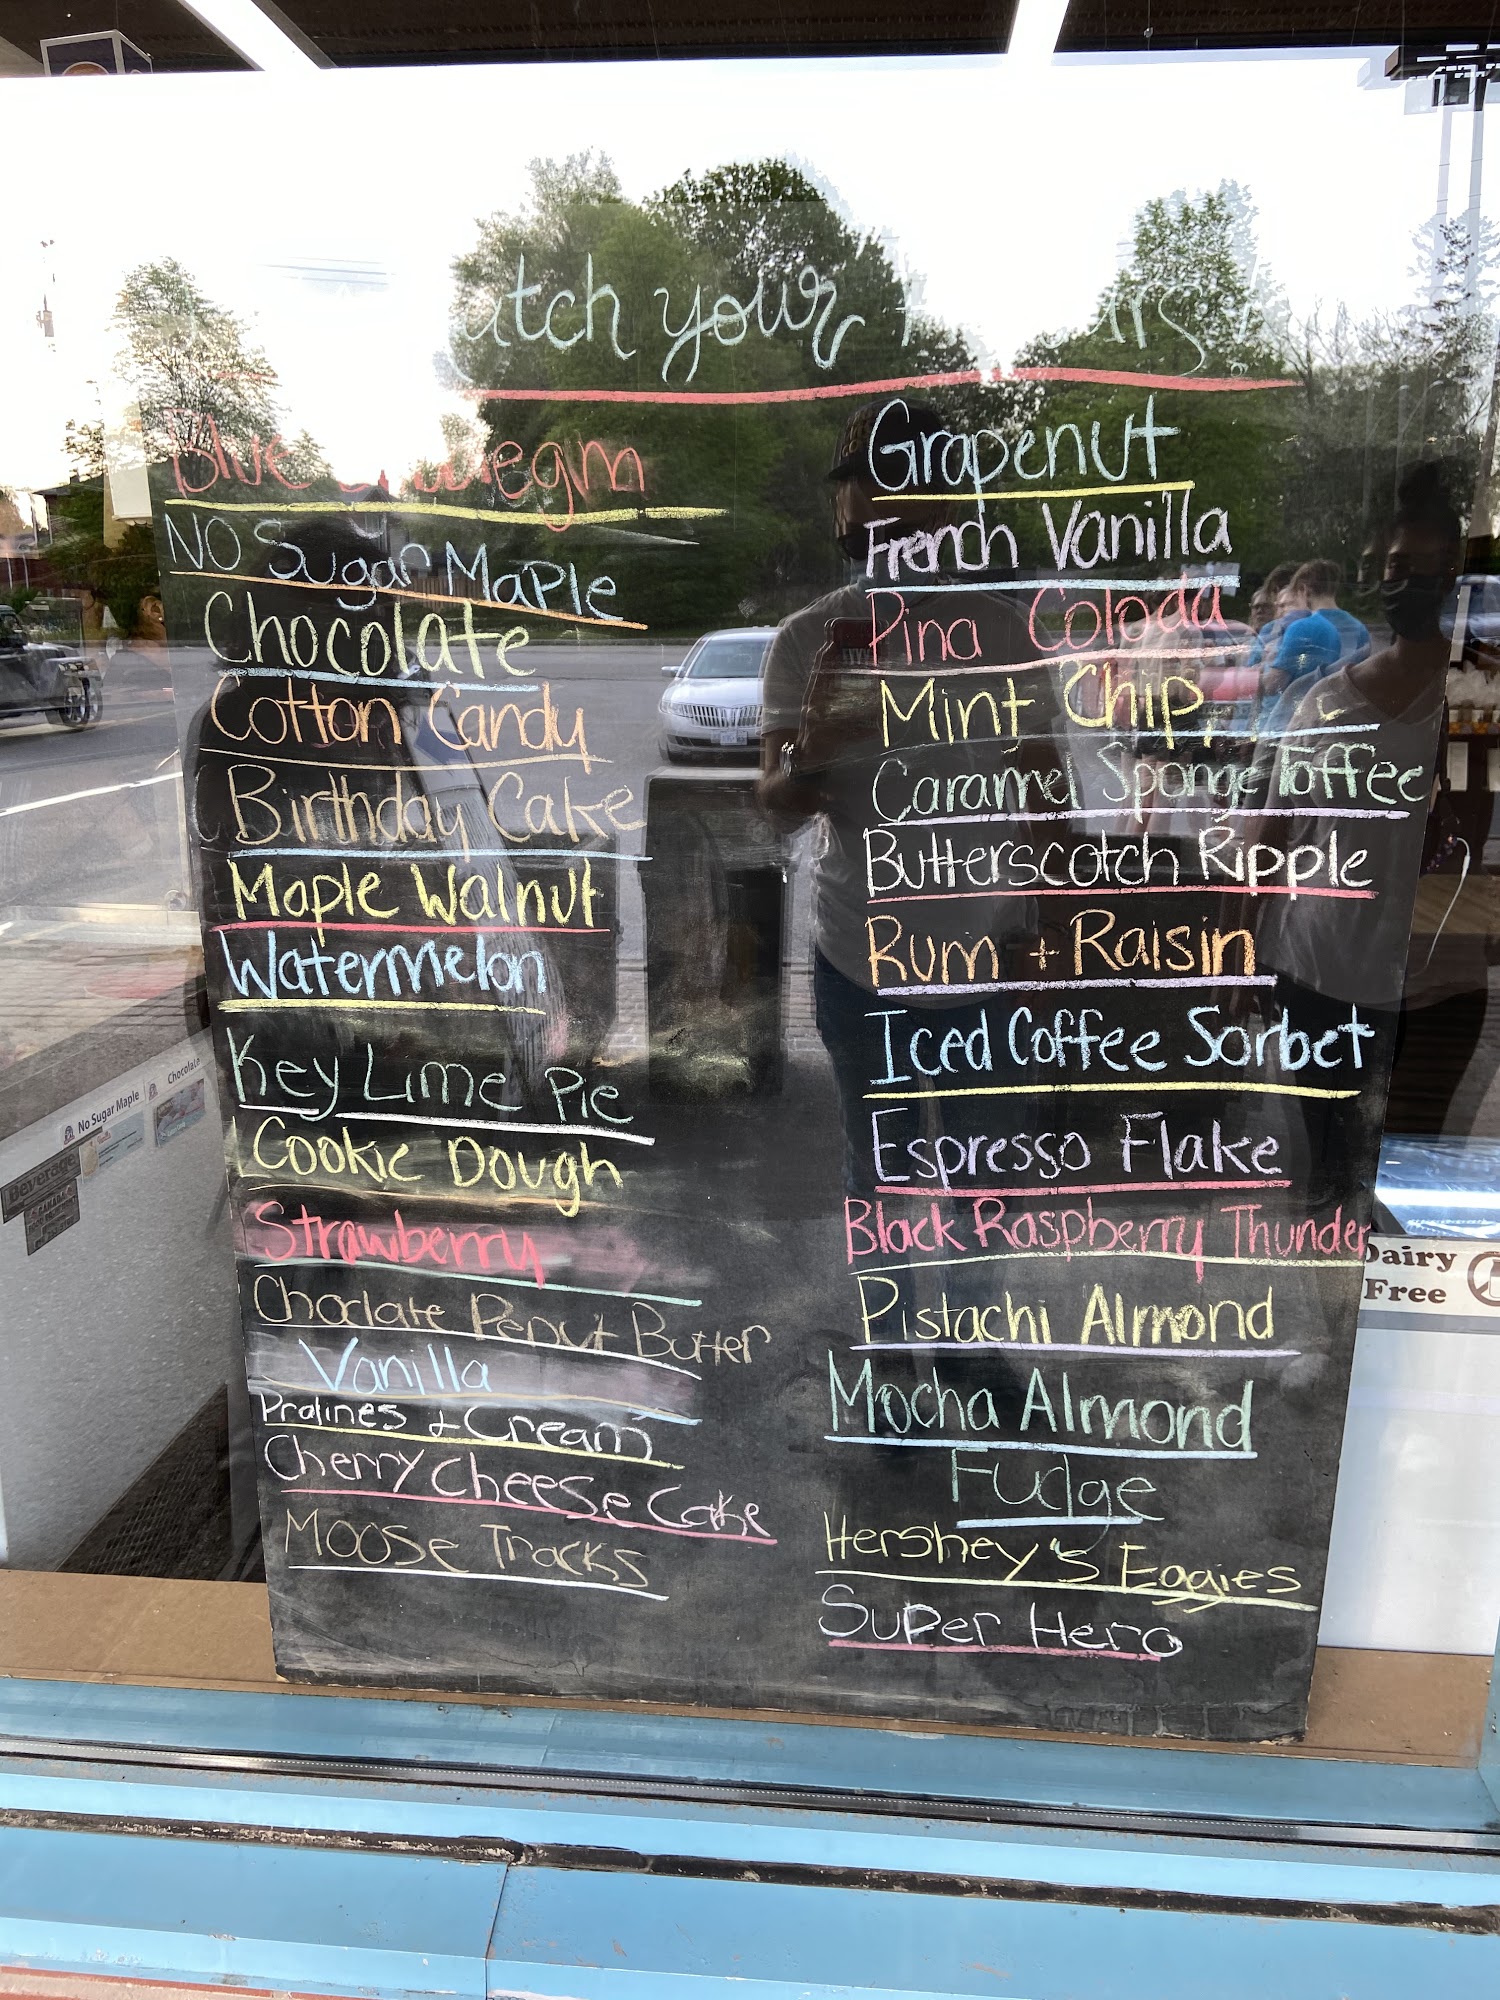 your
Blue
NO Sugar Maple
Chocolate
Cotton Candy
Birthday Cake
Maple Walnut
Watermelon
Key Lime Pie
Cookie Dough
Strawberry
Choclate Penut Butter
Vanilla
Pralines + Cream
Cherry Cheese Cake
Moose Tracks
Grapenut
French Vanilla
Pina Coloda
Mint Chip
Caramel Sponge Toffee
Butterscotch Ripple
Rum + Raisin
Iced Coffee Sorbet
Espresso Flake
Black Raspberry Thunder
Pistachi Almond
Mocha Almond
Fudge
Hershey's Eggies
Super Hero
No Sugar Maple
Chocolate
Beverage
Dairy
Free